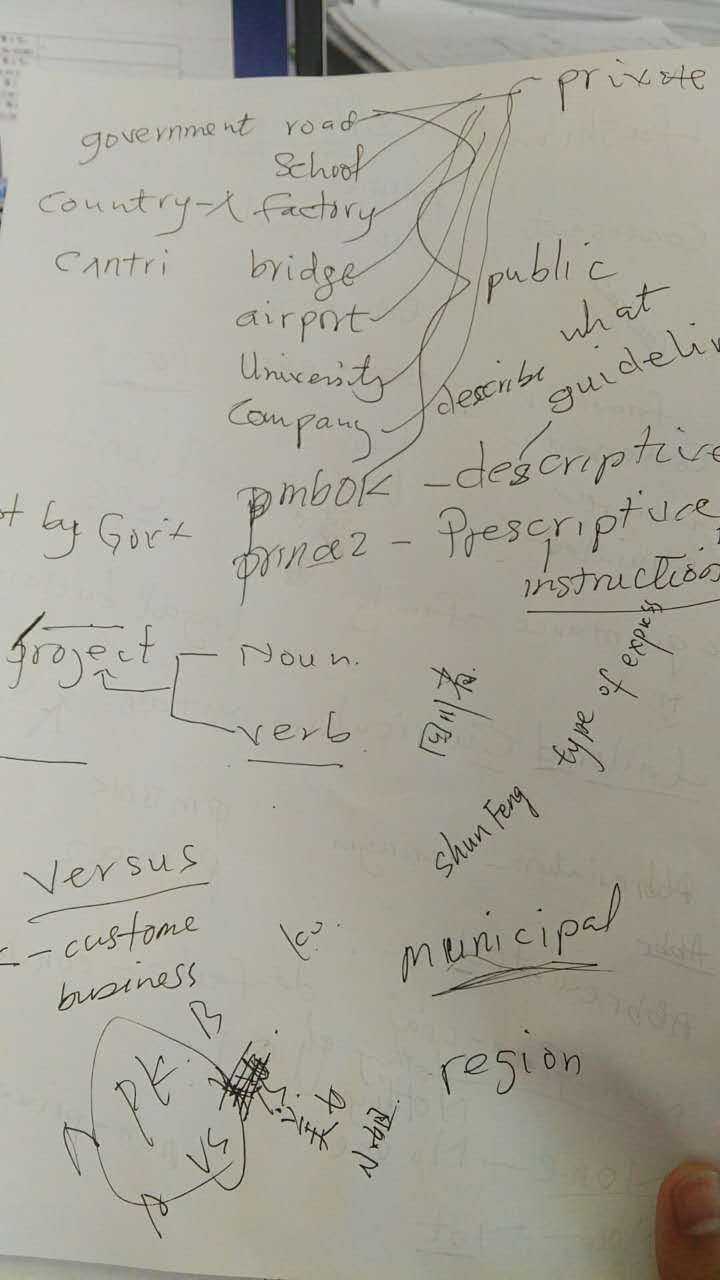 private
government road
School
Country-x factory
Cantri bridge
public
airport
what
University
describe
guidelin
Company
pmbok - descriptive
by Gov't
prince2 - Prescriptive
instruction
project
Noun.
verb
四川省
type of express
shun Feng
Versus
- custome
business
municipal
region
B
PK.
VS